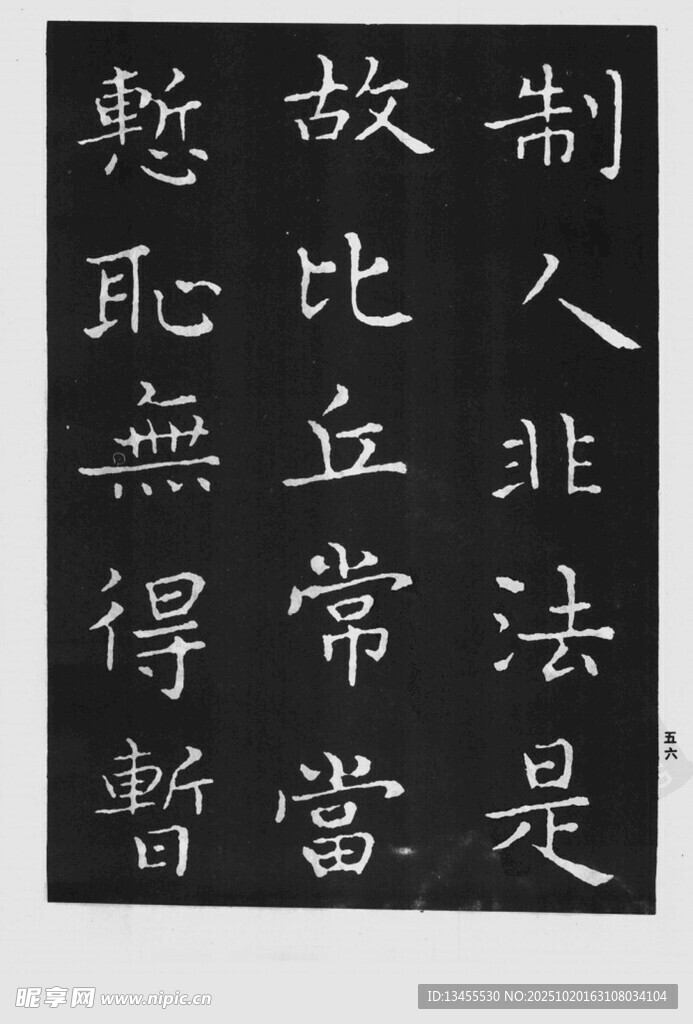 制人非法是
故比丘常當
慙恥無得暫
五六
昵享网 www.nipic.cn
ID:13455530 NO:20251020163108034104